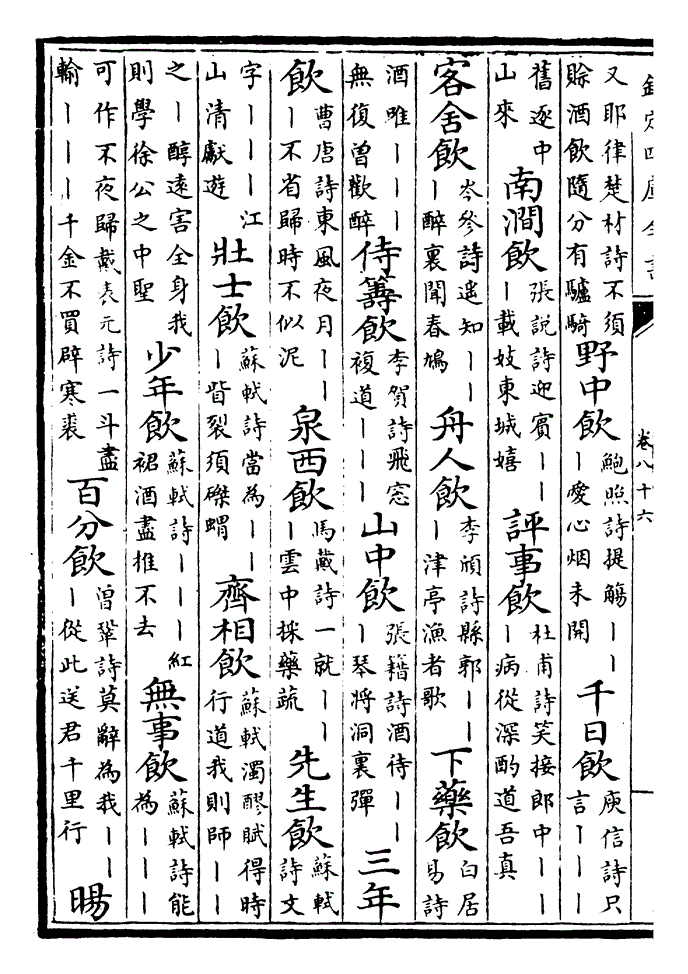 欽定四庫全書
卷八十六
又耶律楚材詩不須賒酒飲隨分有驢騎 野中飲 鮑照詩提觴一一一愛心烟未開 千日飲 庾信詩只言一一一
舊逐中山來 南澗飲 張説詩迎賓一一一載妓東城嬉 評事飲 杜甫詩笑接郎中一一一病從深酌道吾真
客舍飲 岑參詩遥知一一一醉裏聞春鳩 舟人飲 李頎詩縣郭一一一津亭漁者歌 下藥飲 白居易詩
酒唯一一一一無復曽歡醉 侍籌飲 李賀詩飛窓複道一一一 山中飲 張籍詩酒待一一一琴將洞裏彈 三年
飲 曹唐詩東風夜月一一一不省歸時不似泥 泉西飲 馬戴詩一就一一一雲中採藥蔬 先生飲 蘇軾詩文
字一一一江山清獻遊 壯士飲 蘇軾詩當為一一一眥裂須磔蝟 齊相飲 蘇軾濁醪賦得時行道我則師一一
之一醇遠害全身我則學徐公之中聖 少年飲 蘇軾詩一一一紅裙酒盡推不去 無事飲 蘇軾詩能為一一一
可作不夜歸戴表元詩一斗盡輸一一一千金不買辟寒裘 百分飲 曽鞏詩莫辭為我一一一從此送君千里行 暘